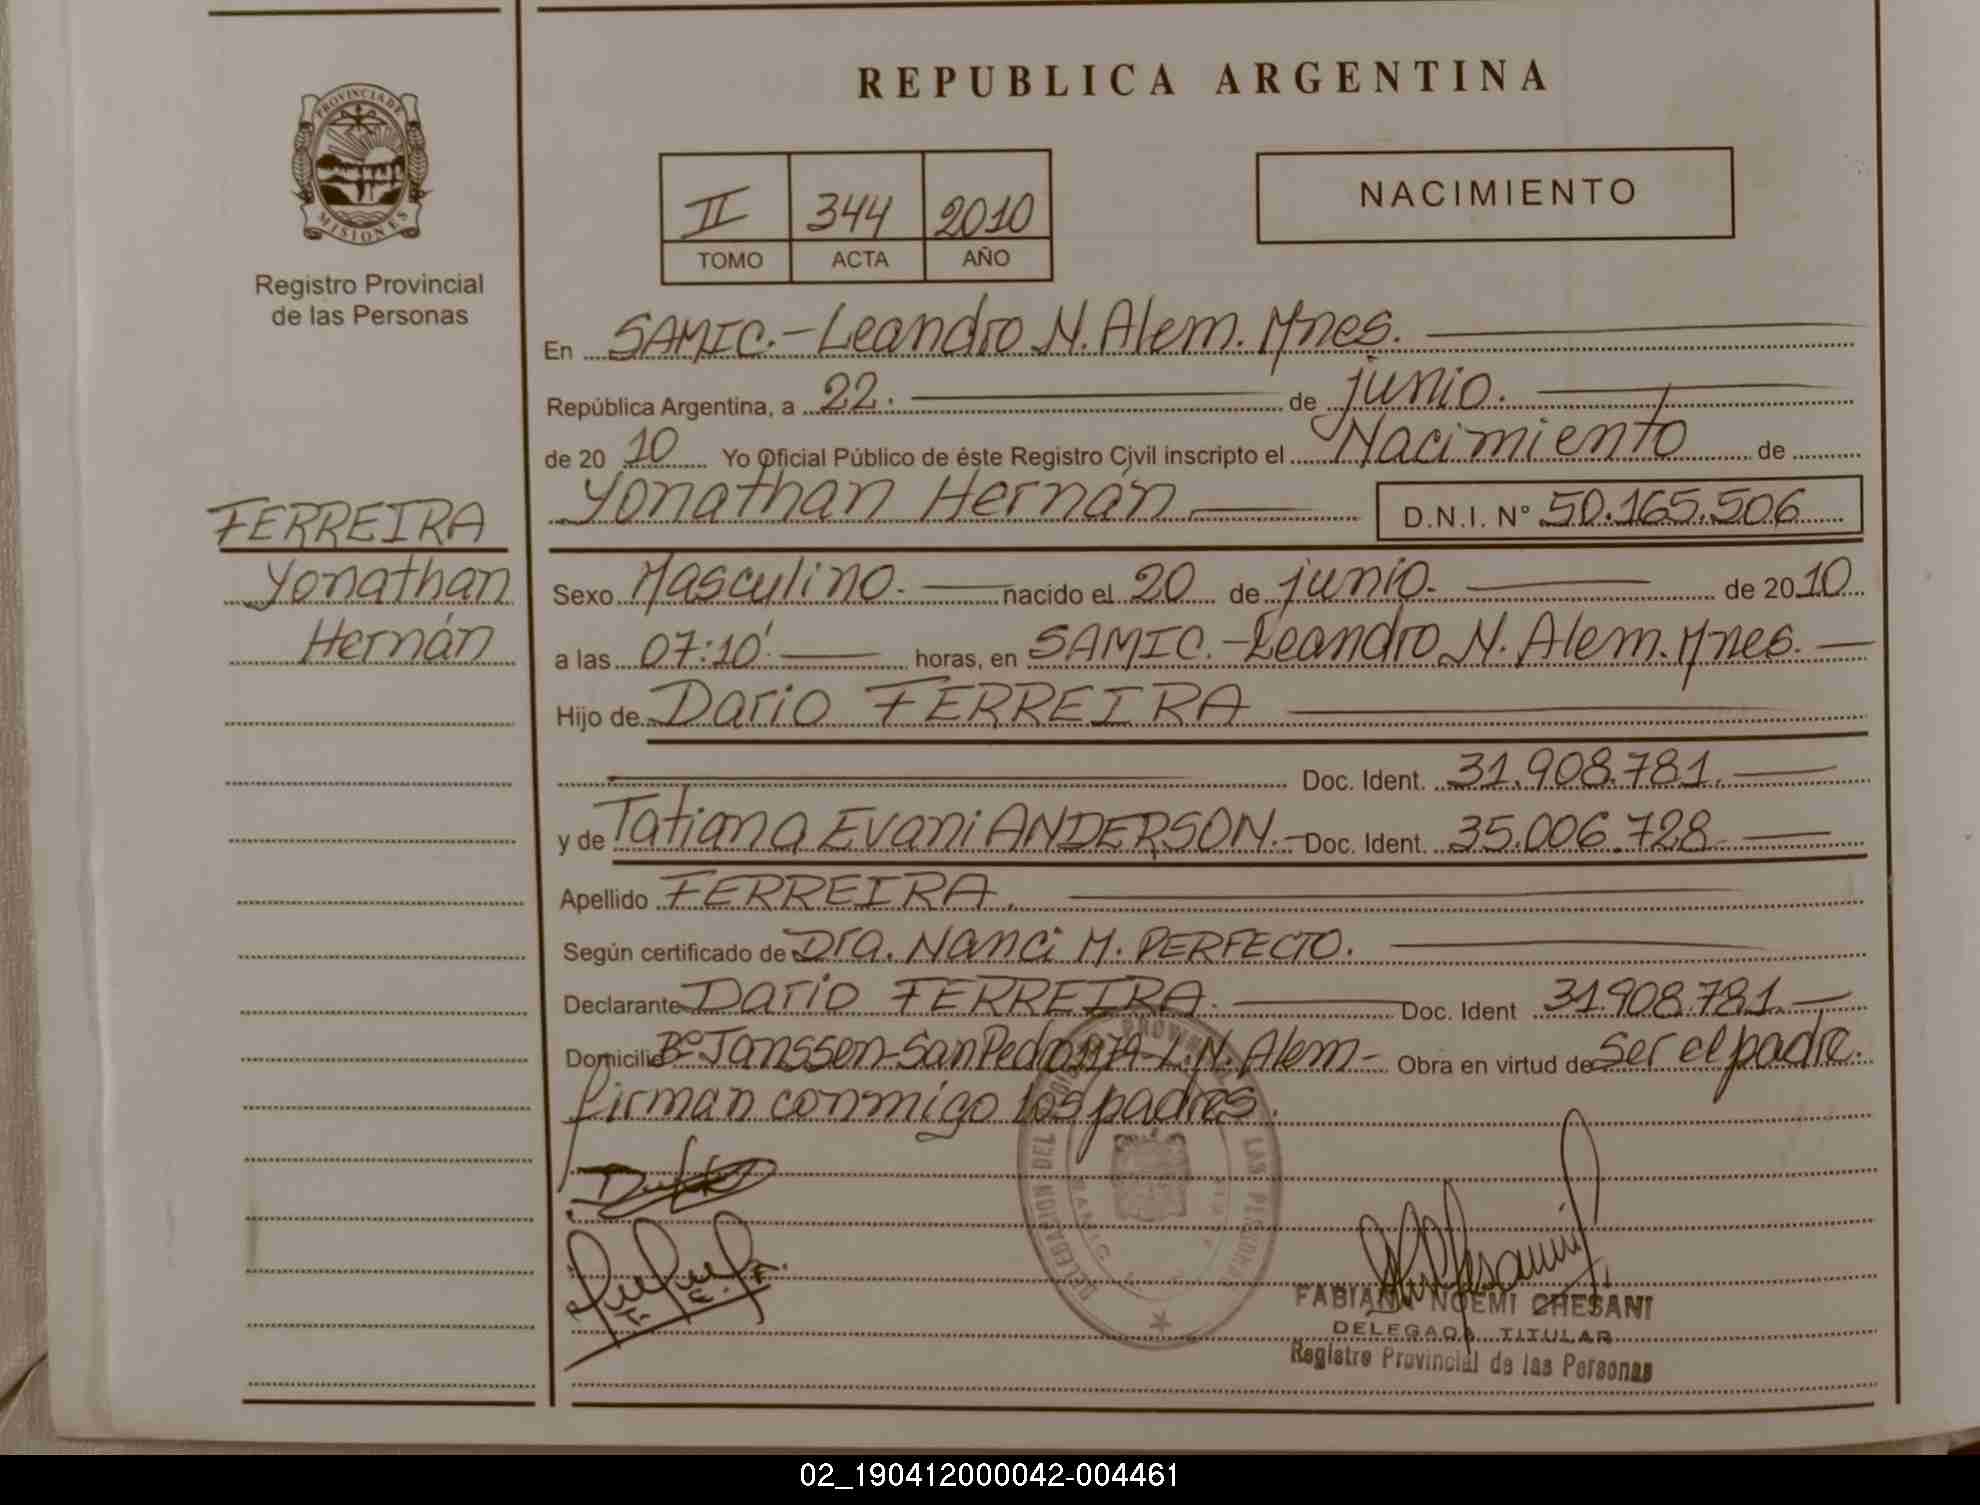 REPUBLICA ARGENTINA
PROVINCIA DE
MISIONES
Registro Provincial
de las Personas
II 344 2010
TOMO ACTA AÑO
NACIMIENTO
En SAMIC.-Leandro N. Alem. Mnes.
República Argentina, a 22. de junio.
de 20 10 Yo Oficial Público de éste Registro Civil inscripto el Nacimiento de
Yonathan Hernán D.N.I. Nº 50.165.506
FERREIRA
Yonathan
Hernán
Sexo Masculino. nacido el 20 de junio. de 2010
a las 07:10' horas, en SAMIC.-Leandro N. Alem. Mnes.
Hijo de Dario FERREIRA
Doc. Ident. 31.908.781.
y de Tatiana Evani ANDERSON.- Doc. Ident. 35.006.728
Apellido FERREIRA.
Según certificado de Dra. Nanci M. PERFECTO.
Declarante Dario FERREIRA. Doc. Ident 31.908.781.
Domicilio Bº Janssen-San Pedro 1179-L.N. Alem- Obra en virtud de ser el padre.
firman conmigo los padres.
DELEGACION DEL REGISTRO PROVINCIAL DE LAS PERSONAS
SAMIC
FABIANA NOEMI CHESANI
DELEGADA TITULAR
Registro Provincial de las Personas
02_190412000042-004461